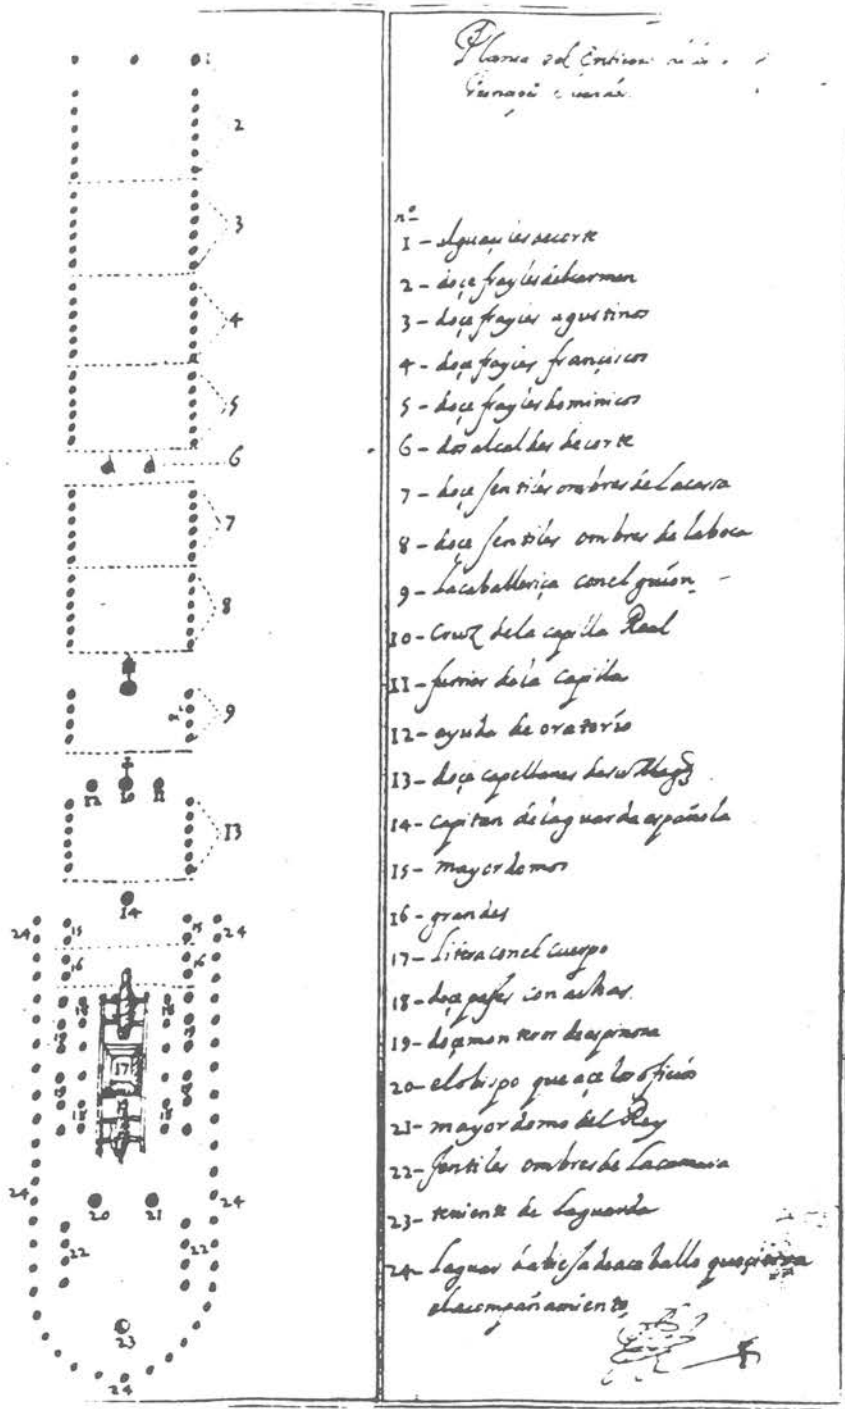 Planta del Entierro
nº
1 - alguaciles de corte
2 - doçe frayles del carmen
3 - doçe frayles agustinos
4 - doçe frayles françiscos
5 - doçe frayles dominicos
6 - dos alcaldes de corte
7 - doçe jentiles ombres de la cassa
8 - doçe jentiles ombres de la boca
9 - la caballeriça con el guion
10 - Cruz de la capilla Real
11 - furrier de la Capilla
12 - ayuda de oratorio
13 - doçe capellanes de su Magd
14 - capitan de la guarda española
15 - mayordomos
16 - grandes
17 - Litera con el cuerpo
18 - doçe pajes con achas
19 - doçe monteros de espinosa
20 - el obispo que açe los ofiçios
21 - mayordomo del Rey
22 - jentiles ombres de la camara
23 - teniente de la guarda
24 - la guarda bieja de a caballo que çierra
el acompañamiento
1
2
3
4
5
6
7
8
9
12 10 11
13
14
24 15 15 24
16 16
17
24 20 21 24
22 22
23
24